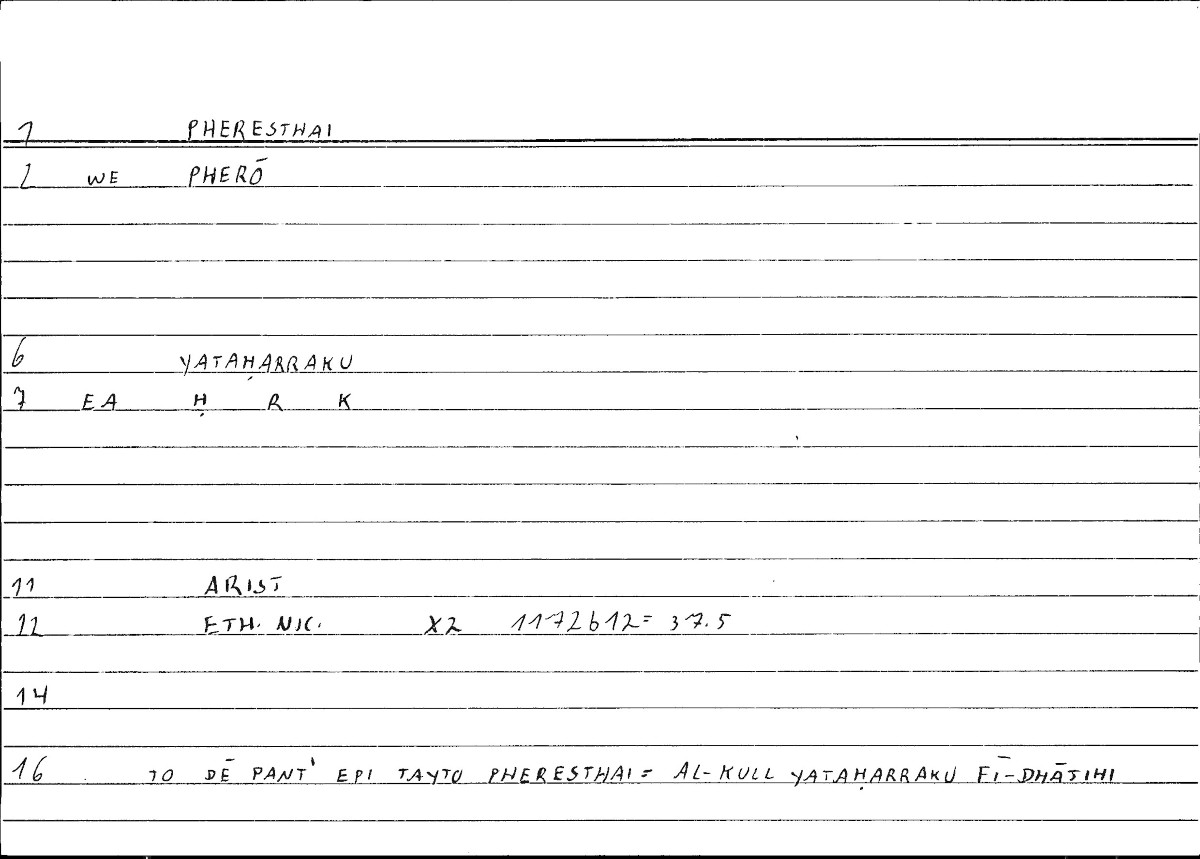 1 PHERESTHAI
2 WE PHERŌ
6 YATAḤARRAKU
7 EA Ḥ R K
11 ARIST
12 ETH. NIC. X2 1172b12= 37.5
14
16 TO DĒ PANT' EPI TAYTO PHERESTHAI= AL-KULL YATAḤARRAKU FĪ-DHĀTIHI